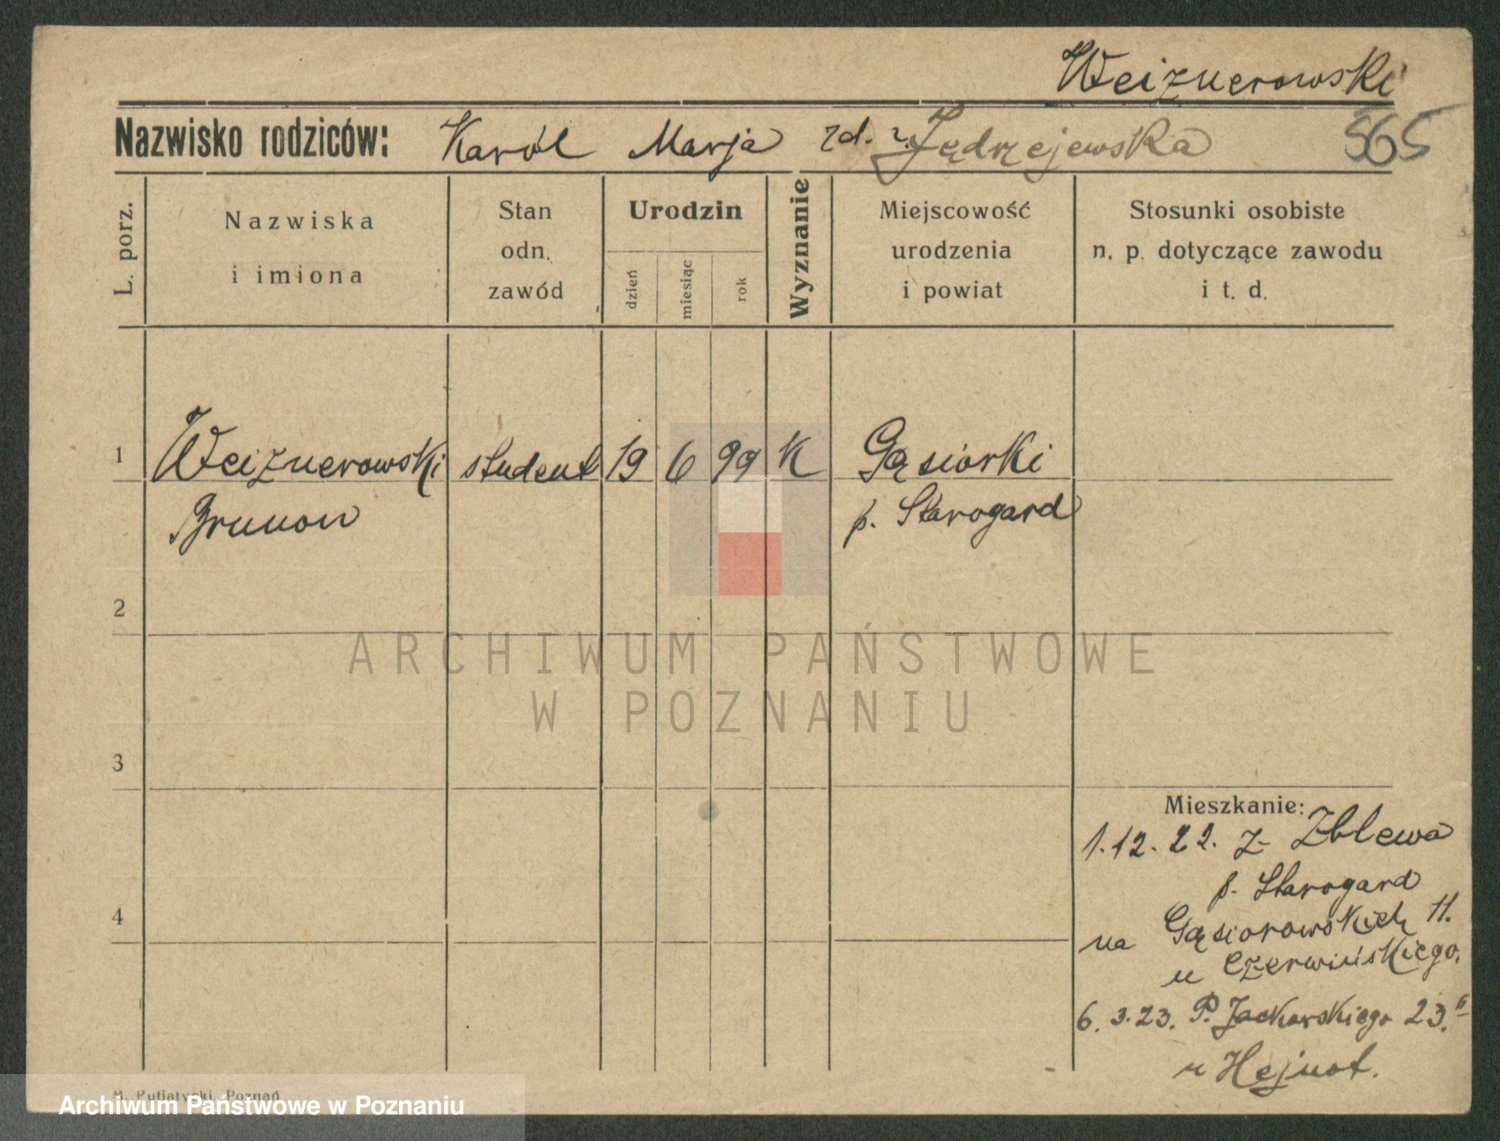 Weiznerowski
Nazwisko rodziców: Karól Marja zd. z. Jędrzejewska 565
L. porz.
Nazwiska
i imiona
Stan
odn.
zawód
Urodzin
dzień
miesiąc
rok
Wyznanie
Miejscowość
urodzenia
i powiat
Stosunki osobiste
n. p. dotyczące zawodu
i t. d.
1 Weiznerowski student 19 6 99 K Gąsiorki
Brunon p. Starogard
2
ARCHIWUM PAŃSTWOWE
W POZNANIU
3
Mieszkanie:
1.12.22. z Zblewa
p. Starogard
4
na Gąsiorowskich 11.
u Czerwińskiego.
6.3.23. P. Jackowskiego 23.II
u Hejnot.
Poznań
Archiwum Państwowe w Poznaniu